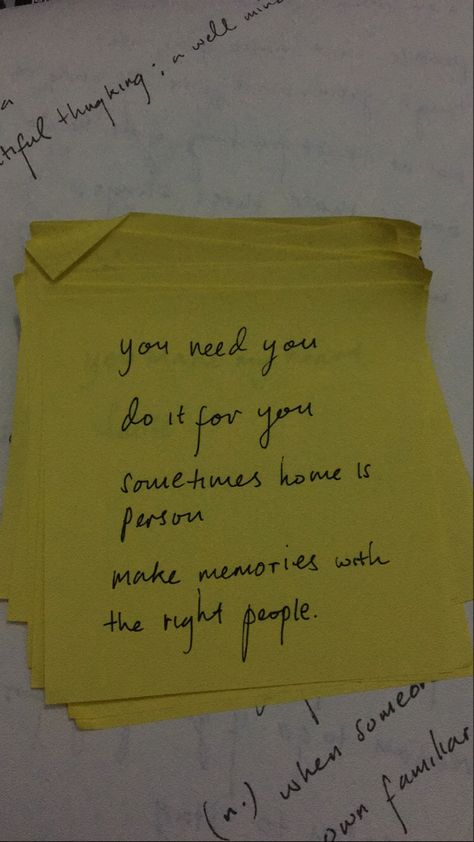 a
tiful thinking; a well mind
you need you
do it for you
sometimes home is
person
make memories with
the right people.
(n.) when someon
own familiar